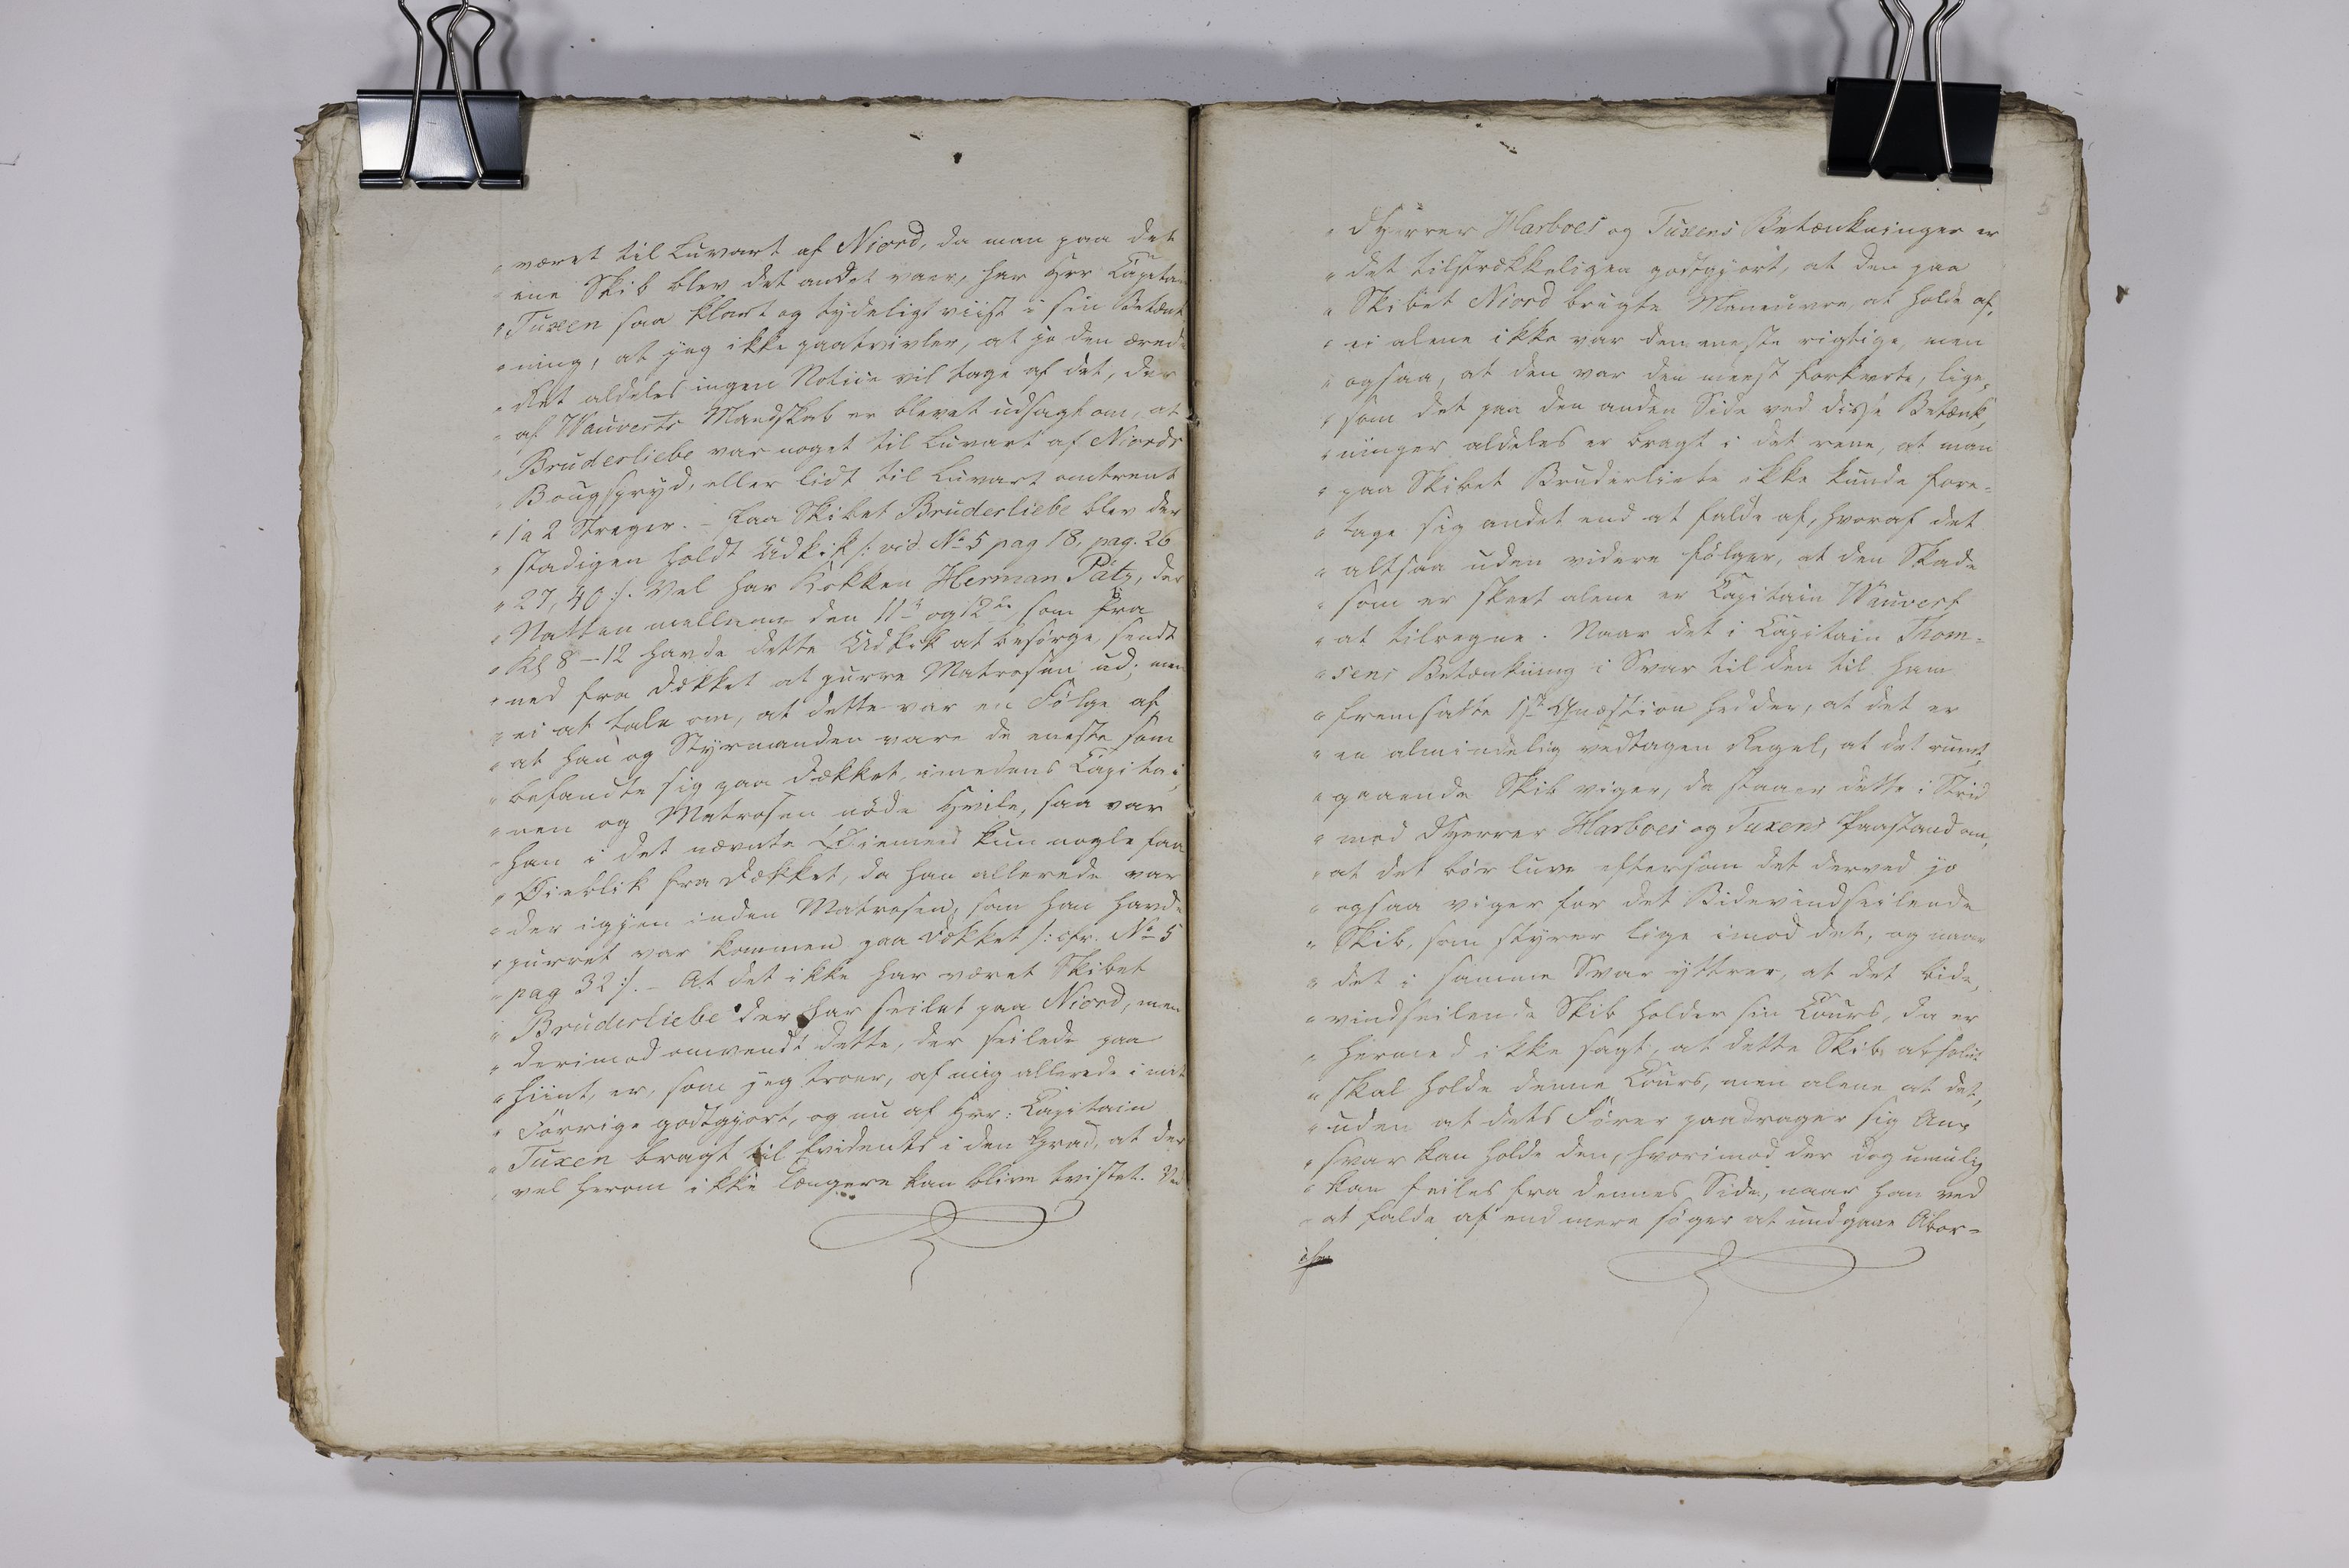 " været til Luvart af Niord, da man paa det
" ene Skib blev det andet vaer, har Hrr Capitai
" Tuxen saa klart og tydeligt viist i sin Betænk
" ning, at jeg ikke paatvivler, at jo den ærede
" Ret aldeles ingen Notice vil tage af det, der
" af Wauverts Mandskab er blevet udsagt om, at
" Bruderliebe var noget til Luvart af Niords
" Bougspryd, eller lidt til Luvart omtrent
" 1 a 2 Streger. – Paa Skibet Bruderliebe blev der
" stadigen holdt Udkik /: vid No 5 pag 18, pag. 26
" 27, 40 :/. Vel har Kokken Herman Pätz, der
" Natten mellem den 11te og 12te, som fra
" Kl 8–12 havde dette Udkik at besørge, sendt
" ned fra Dækket at purre Matrosen ud; men
" ei at tale om, at dette var en Følge af,
" at han og Styrmanden vare de eneste som
" befandte sig paa Dækket, imedens Capitai,
" nen og Matrosen nøde Hvile, saa var
" han i det nævnte Øiemed kun nogle faa
" Øieblik fra Dækket, da han allerede var
" der igjen inden Matrosen, som han havde
" purret var kommen paa Dækket /: cfr. No 5
" pag 32 :/. – At det ikke har været Skibet
" Bruderliebe der har seilet paa Niord, men
" derimod omvendt dette, der seilede paa
" hiint, er, som jeg troer, af mig allerede i mit
" Forrige godtgjort, og nu af Hrr: Capitain
" Tuxen bragt til Evidents i den Grad, at der
" vel herom ikke længere kan blive tvistet. Ved
5
" DHerrer Harboes og Tuxens Betænkninger er
" det tilstrækkeligen godtgjort, at den paa
" Skibet Niord brugte Maneuvre, at holde af,
" ei alene ikke var den eneste rigtige, men
" ogsaa, at den var den meest forkerte, lige,
" som det paa den anden Side ved disse Betænk,
" ninger aldeles er bragt i det rene, at man
" paa Skibet Bruderliebe ikke kunde fore=
" tage sig andet end at falde af, hvoraf det
" altsaa uden videre følger, at den Skade
" som er skeet alene er Capitain Wauvert
" at tilregne. Naar det i Capitain Thom=
" sens Betænkning i Svar til den til ham
" fremsatte 1ste Quæstion hedder, at det er
" en almindelig vedtagen Regel, at det rumt,
" gaaende Skib viger, da staaer dette i Strid
" med DHerrer Harboes og Tuxens Paastand om,
" at det bør luve eftersom det derved jo
" ogsaa viger for det Bidevindseilende
" Skib, som styrer lige imod det, og naar
" det i samme Svar yttrer, at det bide,
" vindseilende Skib holder sin Cours, da er
" hermed ikke sagt, at dette Skib absolut
" skal holde denne Cours, men alene at det,
" uden at dets Fører paadrager sig An,
" svar kan holde den, hvorimod der dog umulig
" kan feiles fra dennes Side, naar han ved
" at falde af end mere søger at undgaae Abor=